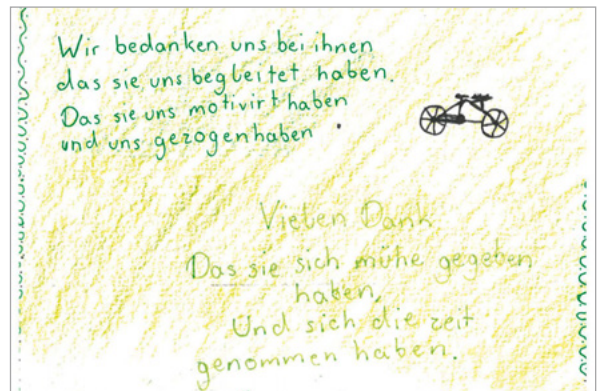 Wir bedanken uns bei ihnen
das sie uns begleitet haben.
Das sie uns motivirt haben
und uns gezogen haben
Vielen Dank
Das sie sich mühe gegeben
haben,
Und sich die zeit
genommen haben.